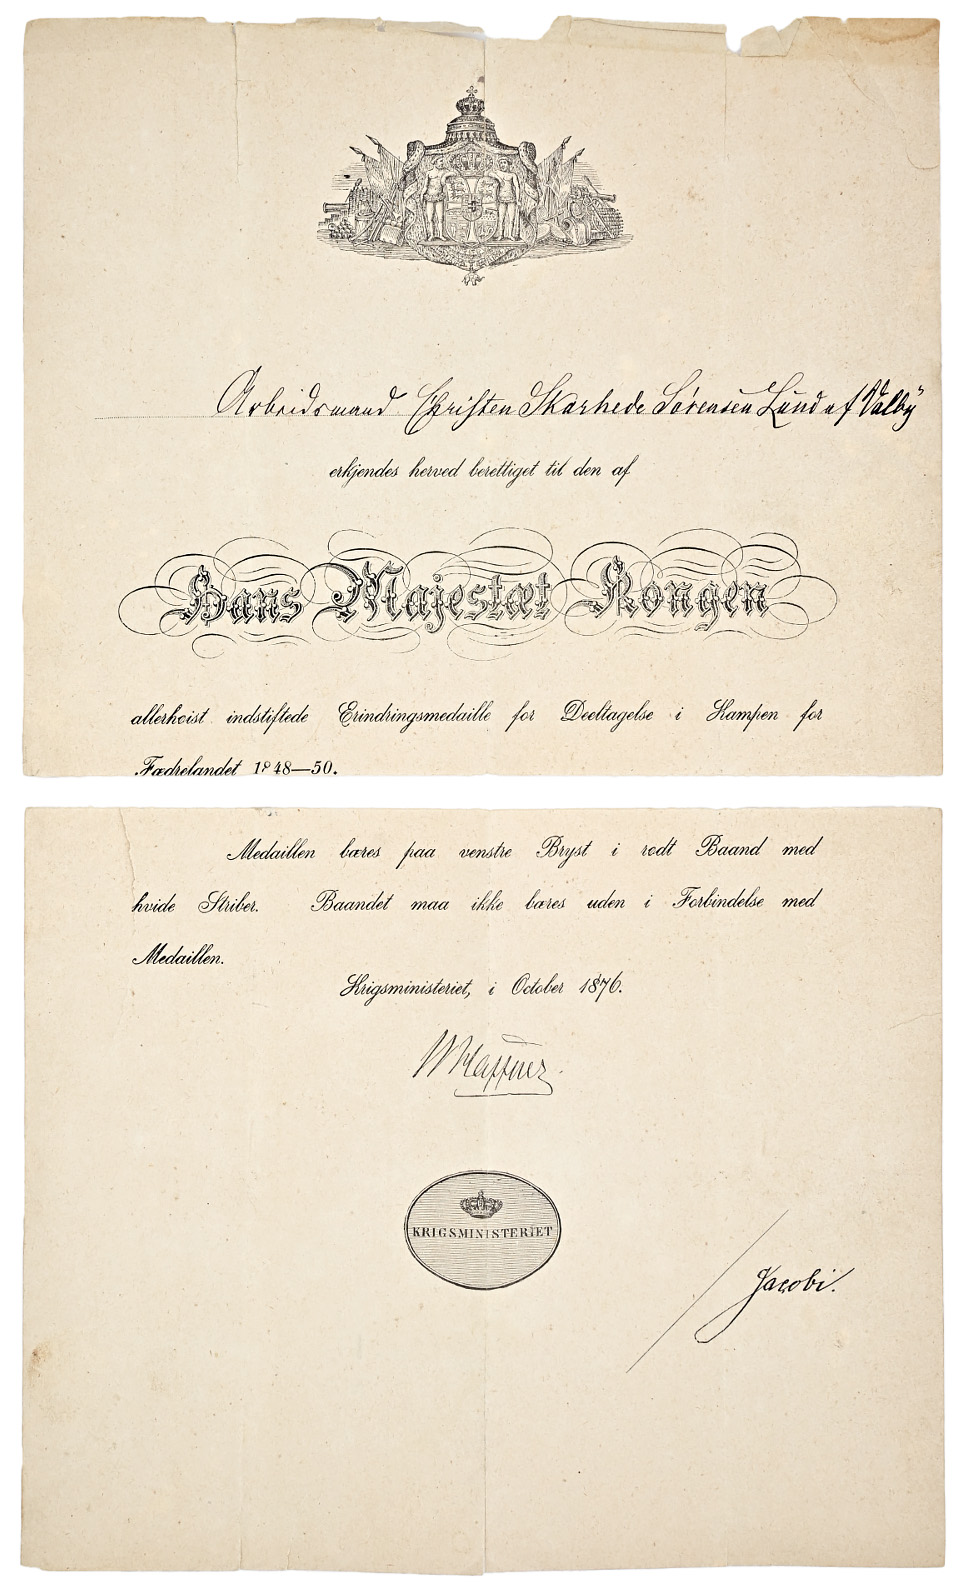 Arbeidsmand Christen Skarhede Sørensen Lund af Valby
erkjendes herved berettiget til den af
Hans Majestæt Kongen
allerhøist indstiftede Erindringsmedaille for Deeltagelse i Kampen for
Fædrelandet 1848—50.
Medaillen bæres paa venstre Bryst i rødt Baand med
hvide Striber. Baandet maa ikke bæres uden i Forbindelse med
Medaillen.
Krigsministeriet, i October 1876.
W Haffner.
KRIGSMINISTERIET
/ Jacobi.